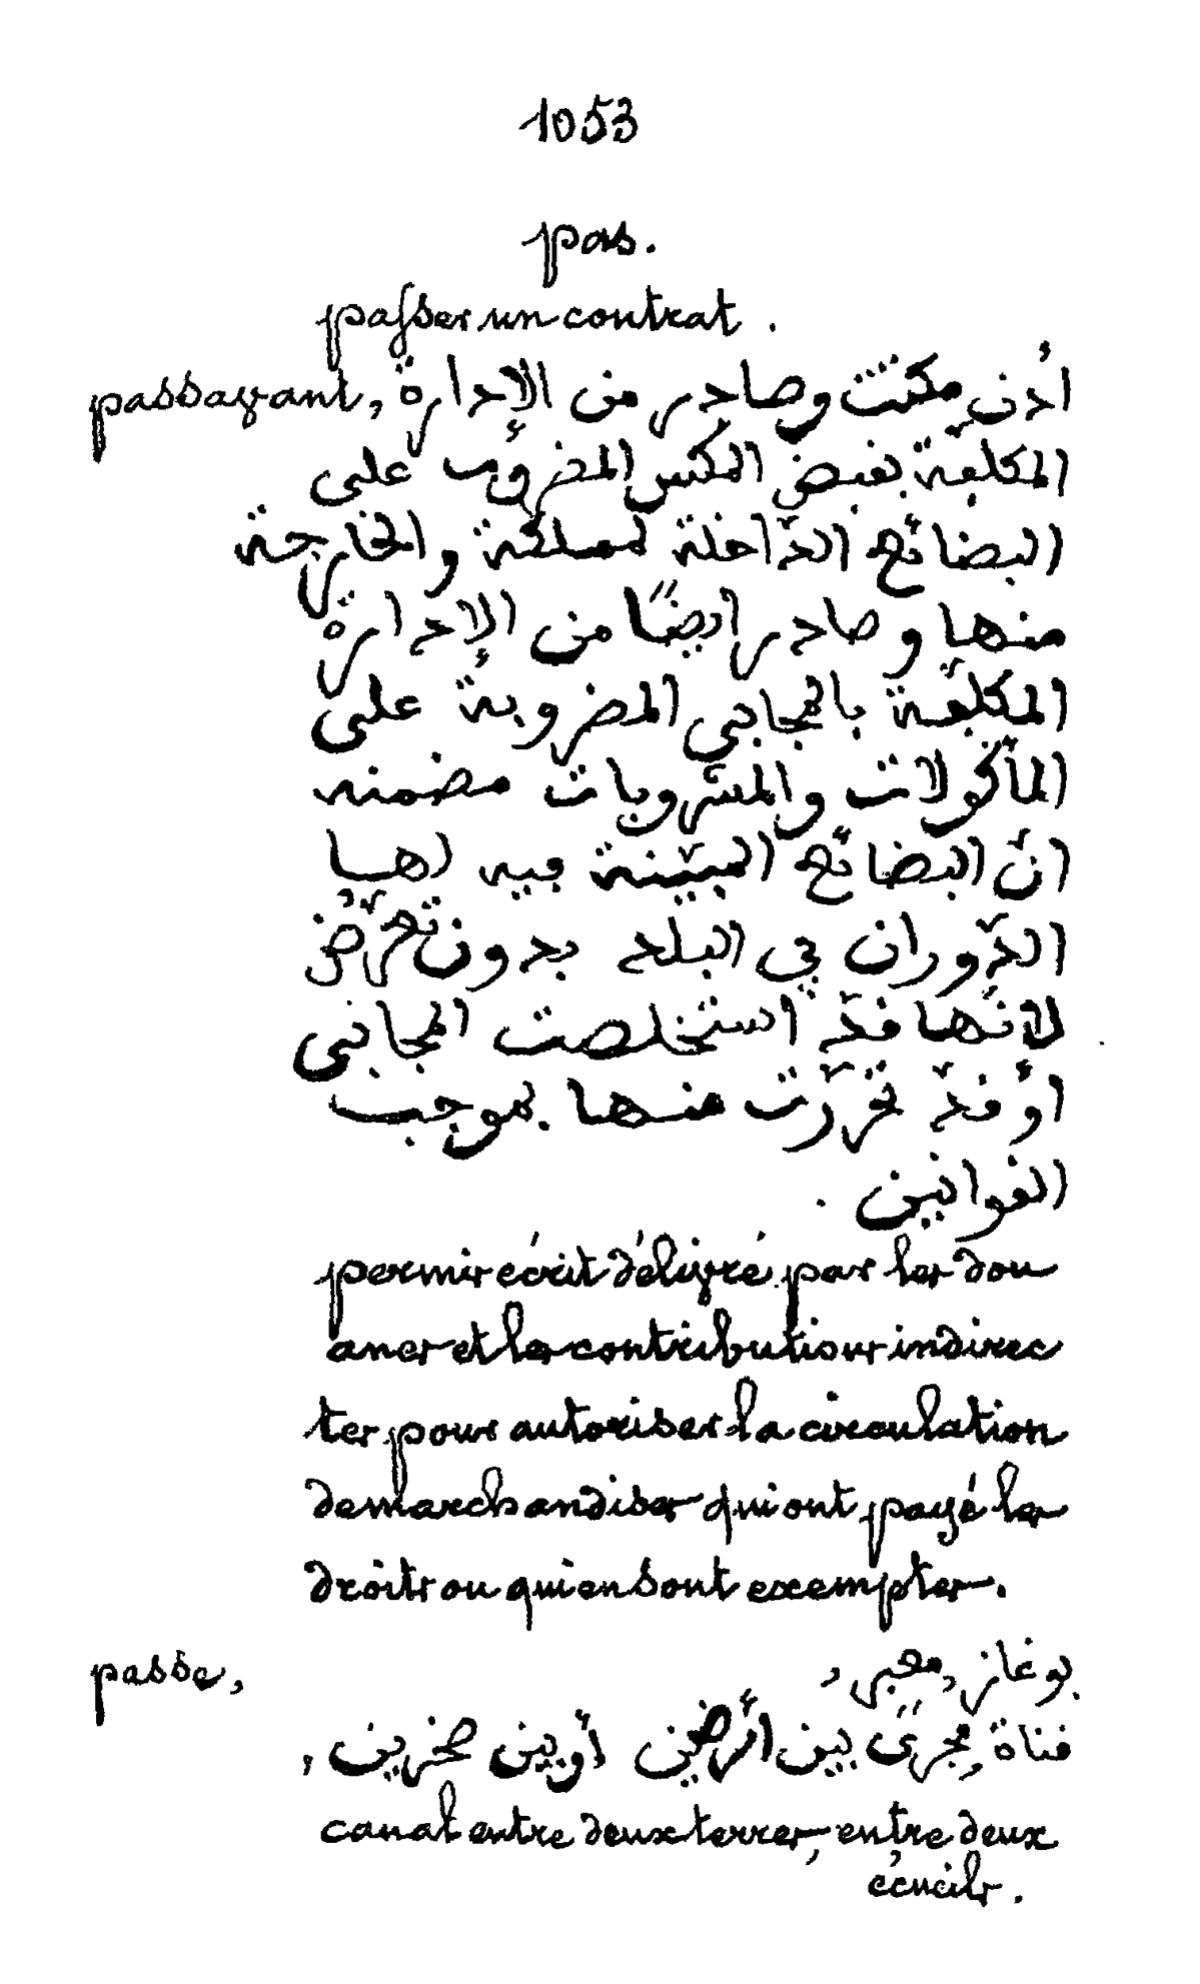 1053
pas.
passer un contrat.
passavant, اُذن مكتت وصادر من الإدارة
المكلّفة بقبض المكس المضروب على
البضائع الدّاخلة لمملكة والخارجة
منها وصادر ايضًا من الإدارة
المكلّفة بالمجابي المضروبة على
المأكولات والمشروبات مضمنه
انّ البضائع المبيّنة فيه لها
الدّوران في البلد بدون تعرّض
لانّها قدّ استخلصت المجابي
أو قدّ تحرّرت منها بموجب
القوانين.
permis écrit délivré par les dou
anes et les contributions indirec
tes pour autoriser la circulation
de marchandises qui ont payé les
droits ou qui en sont exemptes.
passe, بوغاز, معبر,
قناة, مجرًى بين أرضين أو بين صخرين,
canal entre deux terres, entre deux
écueils.